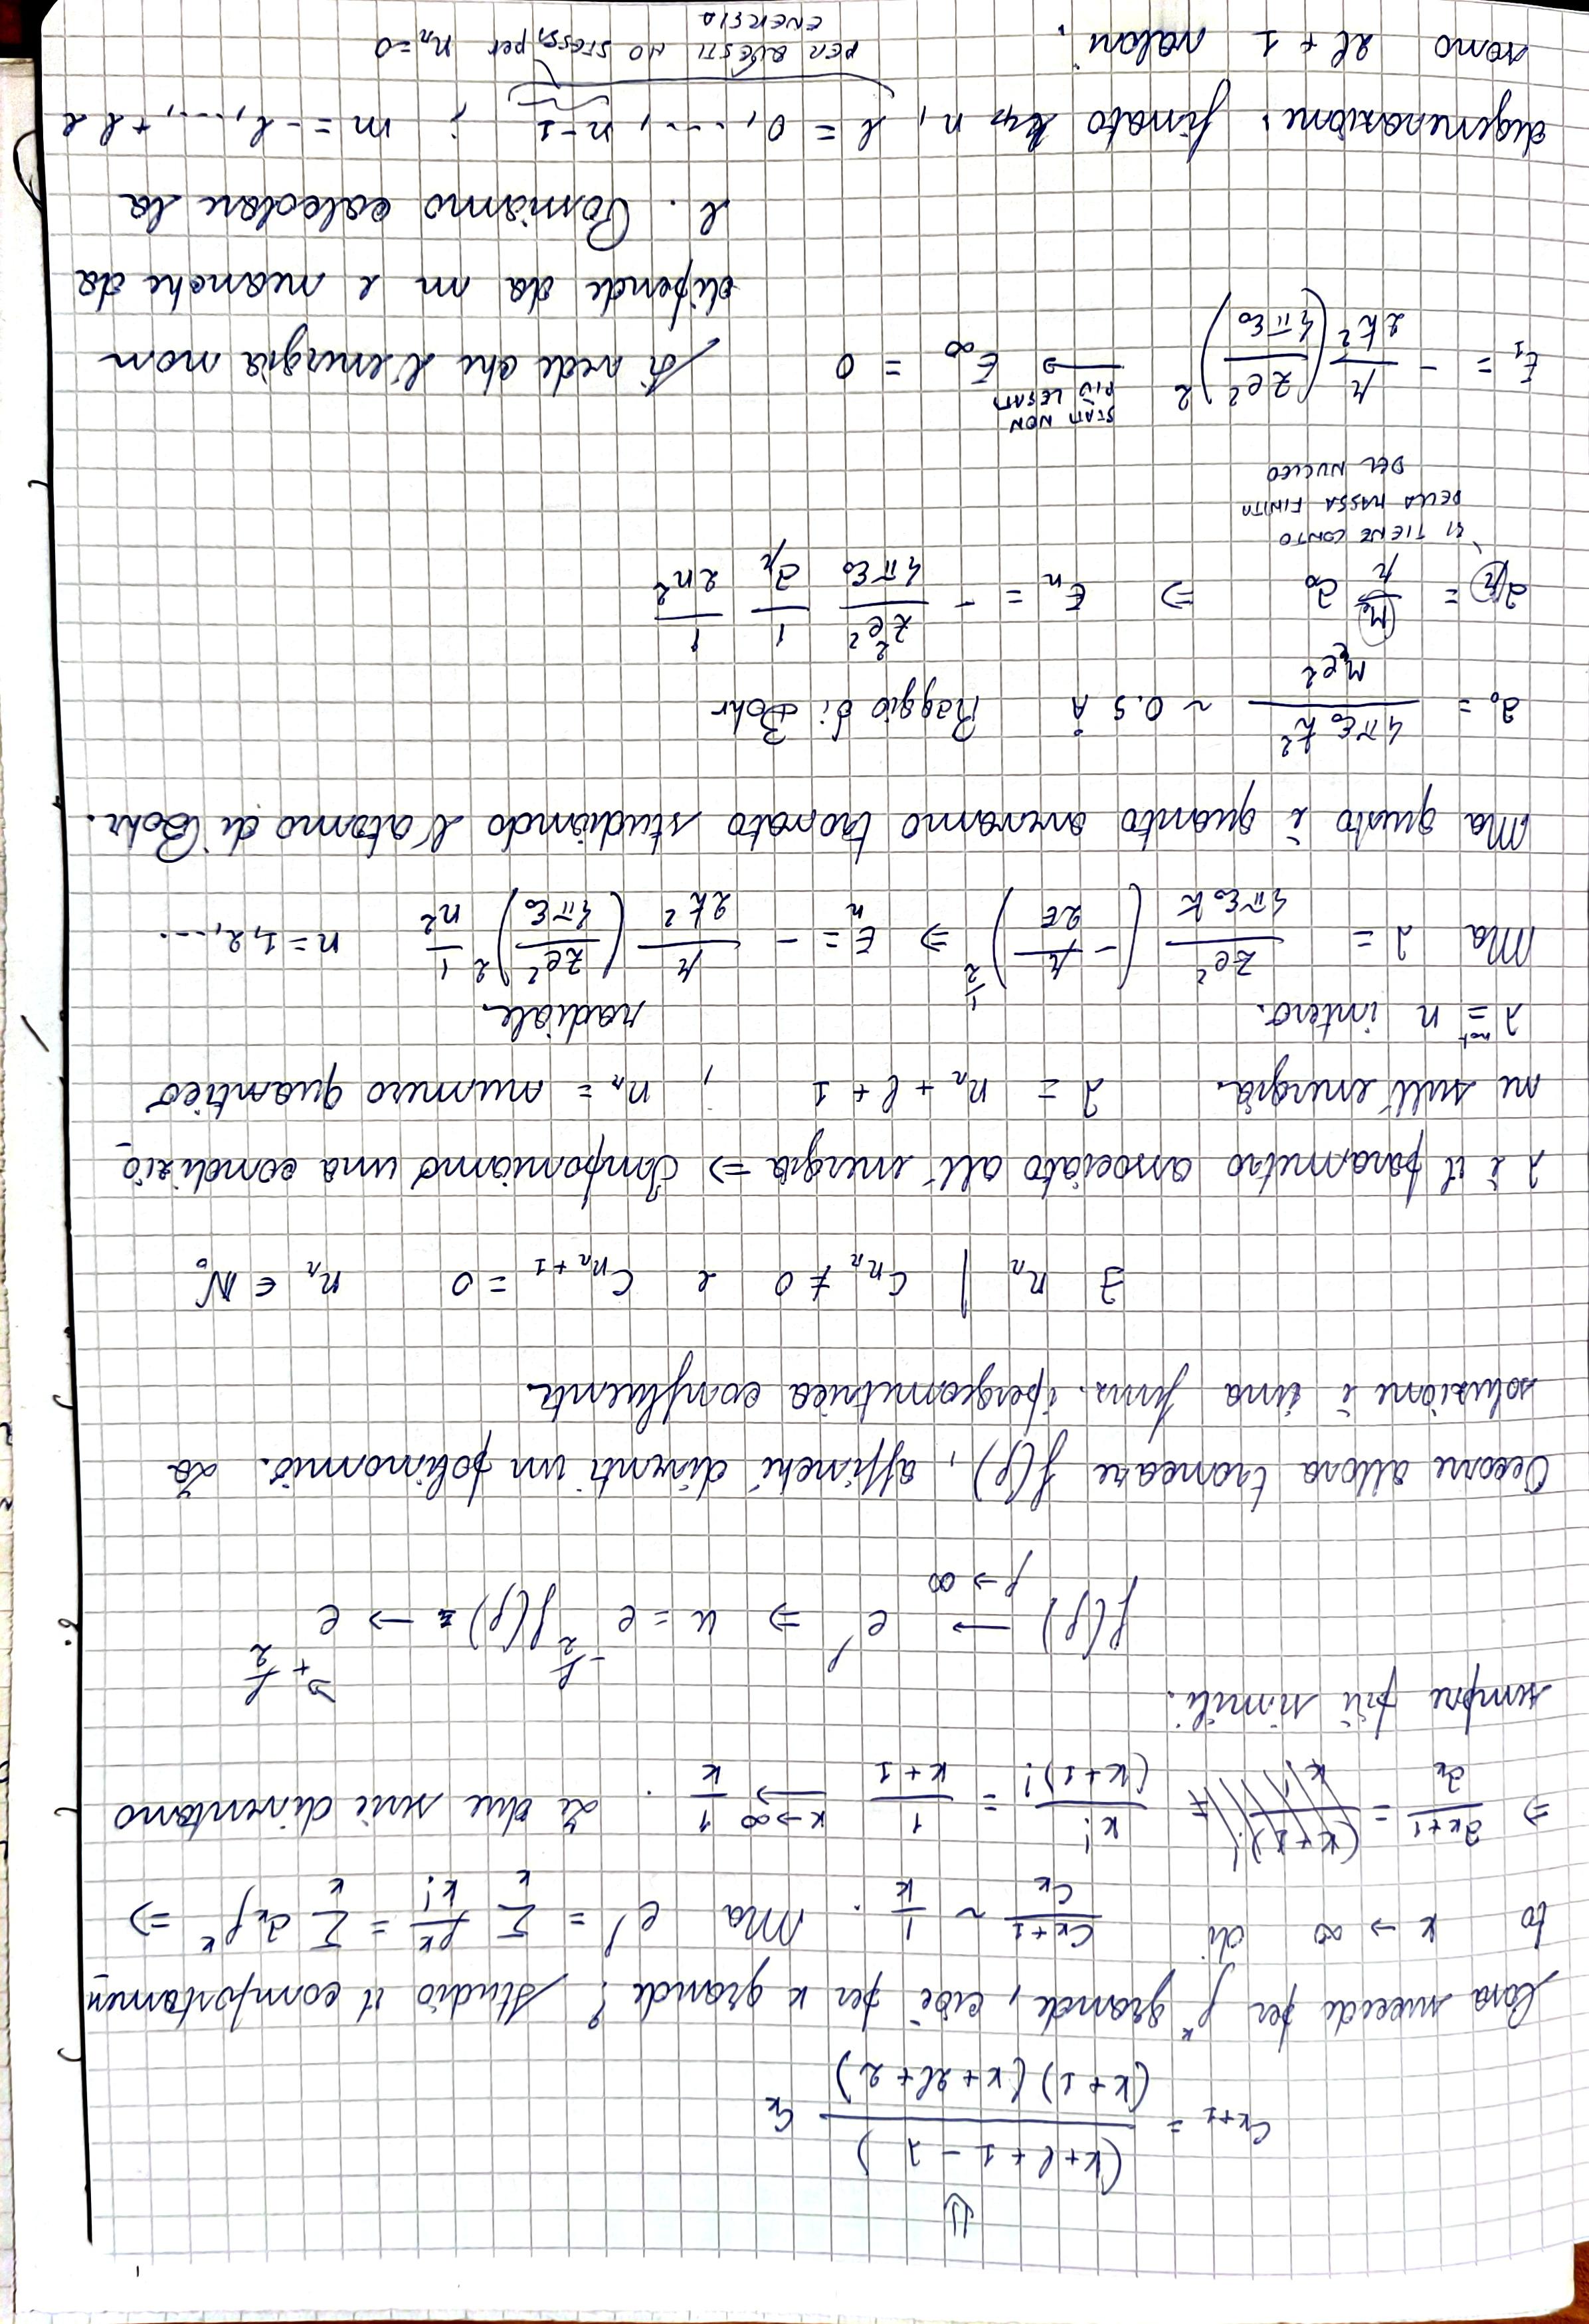 ⇓
c_{k+1} = (k+l+1-λ) / ((k+1)(k+2l+2)) c_k
Cosa succede per ρ^k grande, cioè per k grande? Studio il comportamen
to k → ∞ di c_{k+1}/c_k ~ 1/k . Ma e^ρ = Σ_k ρ^k/k! = Σ_k a_k ρ^k ⇒
⇒ a_{k+1}/a_k = k!/(k+1)! = 1/(k+1) →^{k→∞} 1/k . Le due serie diventano
sempre più simili.
f(ρ) →_{ρ→∞} e^ρ ⇒ u = e^{-ρ/2} f(ρ) → e^{+ρ/2}
Occorre allora troncare f(ρ), affinché diventi un polinomio. La
soluzione è una funz. ipergeometrica confluente.
∃ n_r | c_{n_r} ≠ 0 e c_{n_r+1} = 0 n_r ∈ N_0
λ è il parametro associato all'energia ⇒ Imponiamo una condizio
ne sull'energia. λ = n_r + l + 1 ; n_r = numero quantico
λ =^{not} n intero. radiale.
Ma λ = Ze²/(4πε₀ħ) (-μ/2E)^{1/2} ⇒ E_n = - μ/2ħ² (Ze²/4πε₀)² 1/n² n = 1,2,....
Ma questo è quanto avevamo trovato studiando l'atomo di Bohr.
a₀ = 4πε₀ħ²/(m_e e²) ~ 0.5 Å Raggio di Bohr
a_μ = m_e/μ a₀ ⇒ E_n = - Z²e²/4πε₀ 1/a_μ 1/2n²
SI TIENE CONTO
DELLA MASSA FINITA
DEL NUCLEO
STATI NON
PIÙ LEGATI
E₁ = - μ/2ħ² (Ze²/4πε₀)² → E_∞ = 0 Si vede che l'energia non
dipende da m e neanche da
l. Possiamo calcolare la
degenerazione: fissato n, l = 0,...., n-1 ; m = -l,...., +l e
sono 2l + 1 valori. PER QUESTI HO STESSA per n_r=0
ENERGIA